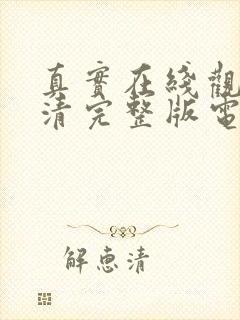 真實在綫觀
清完整版電
解惠清